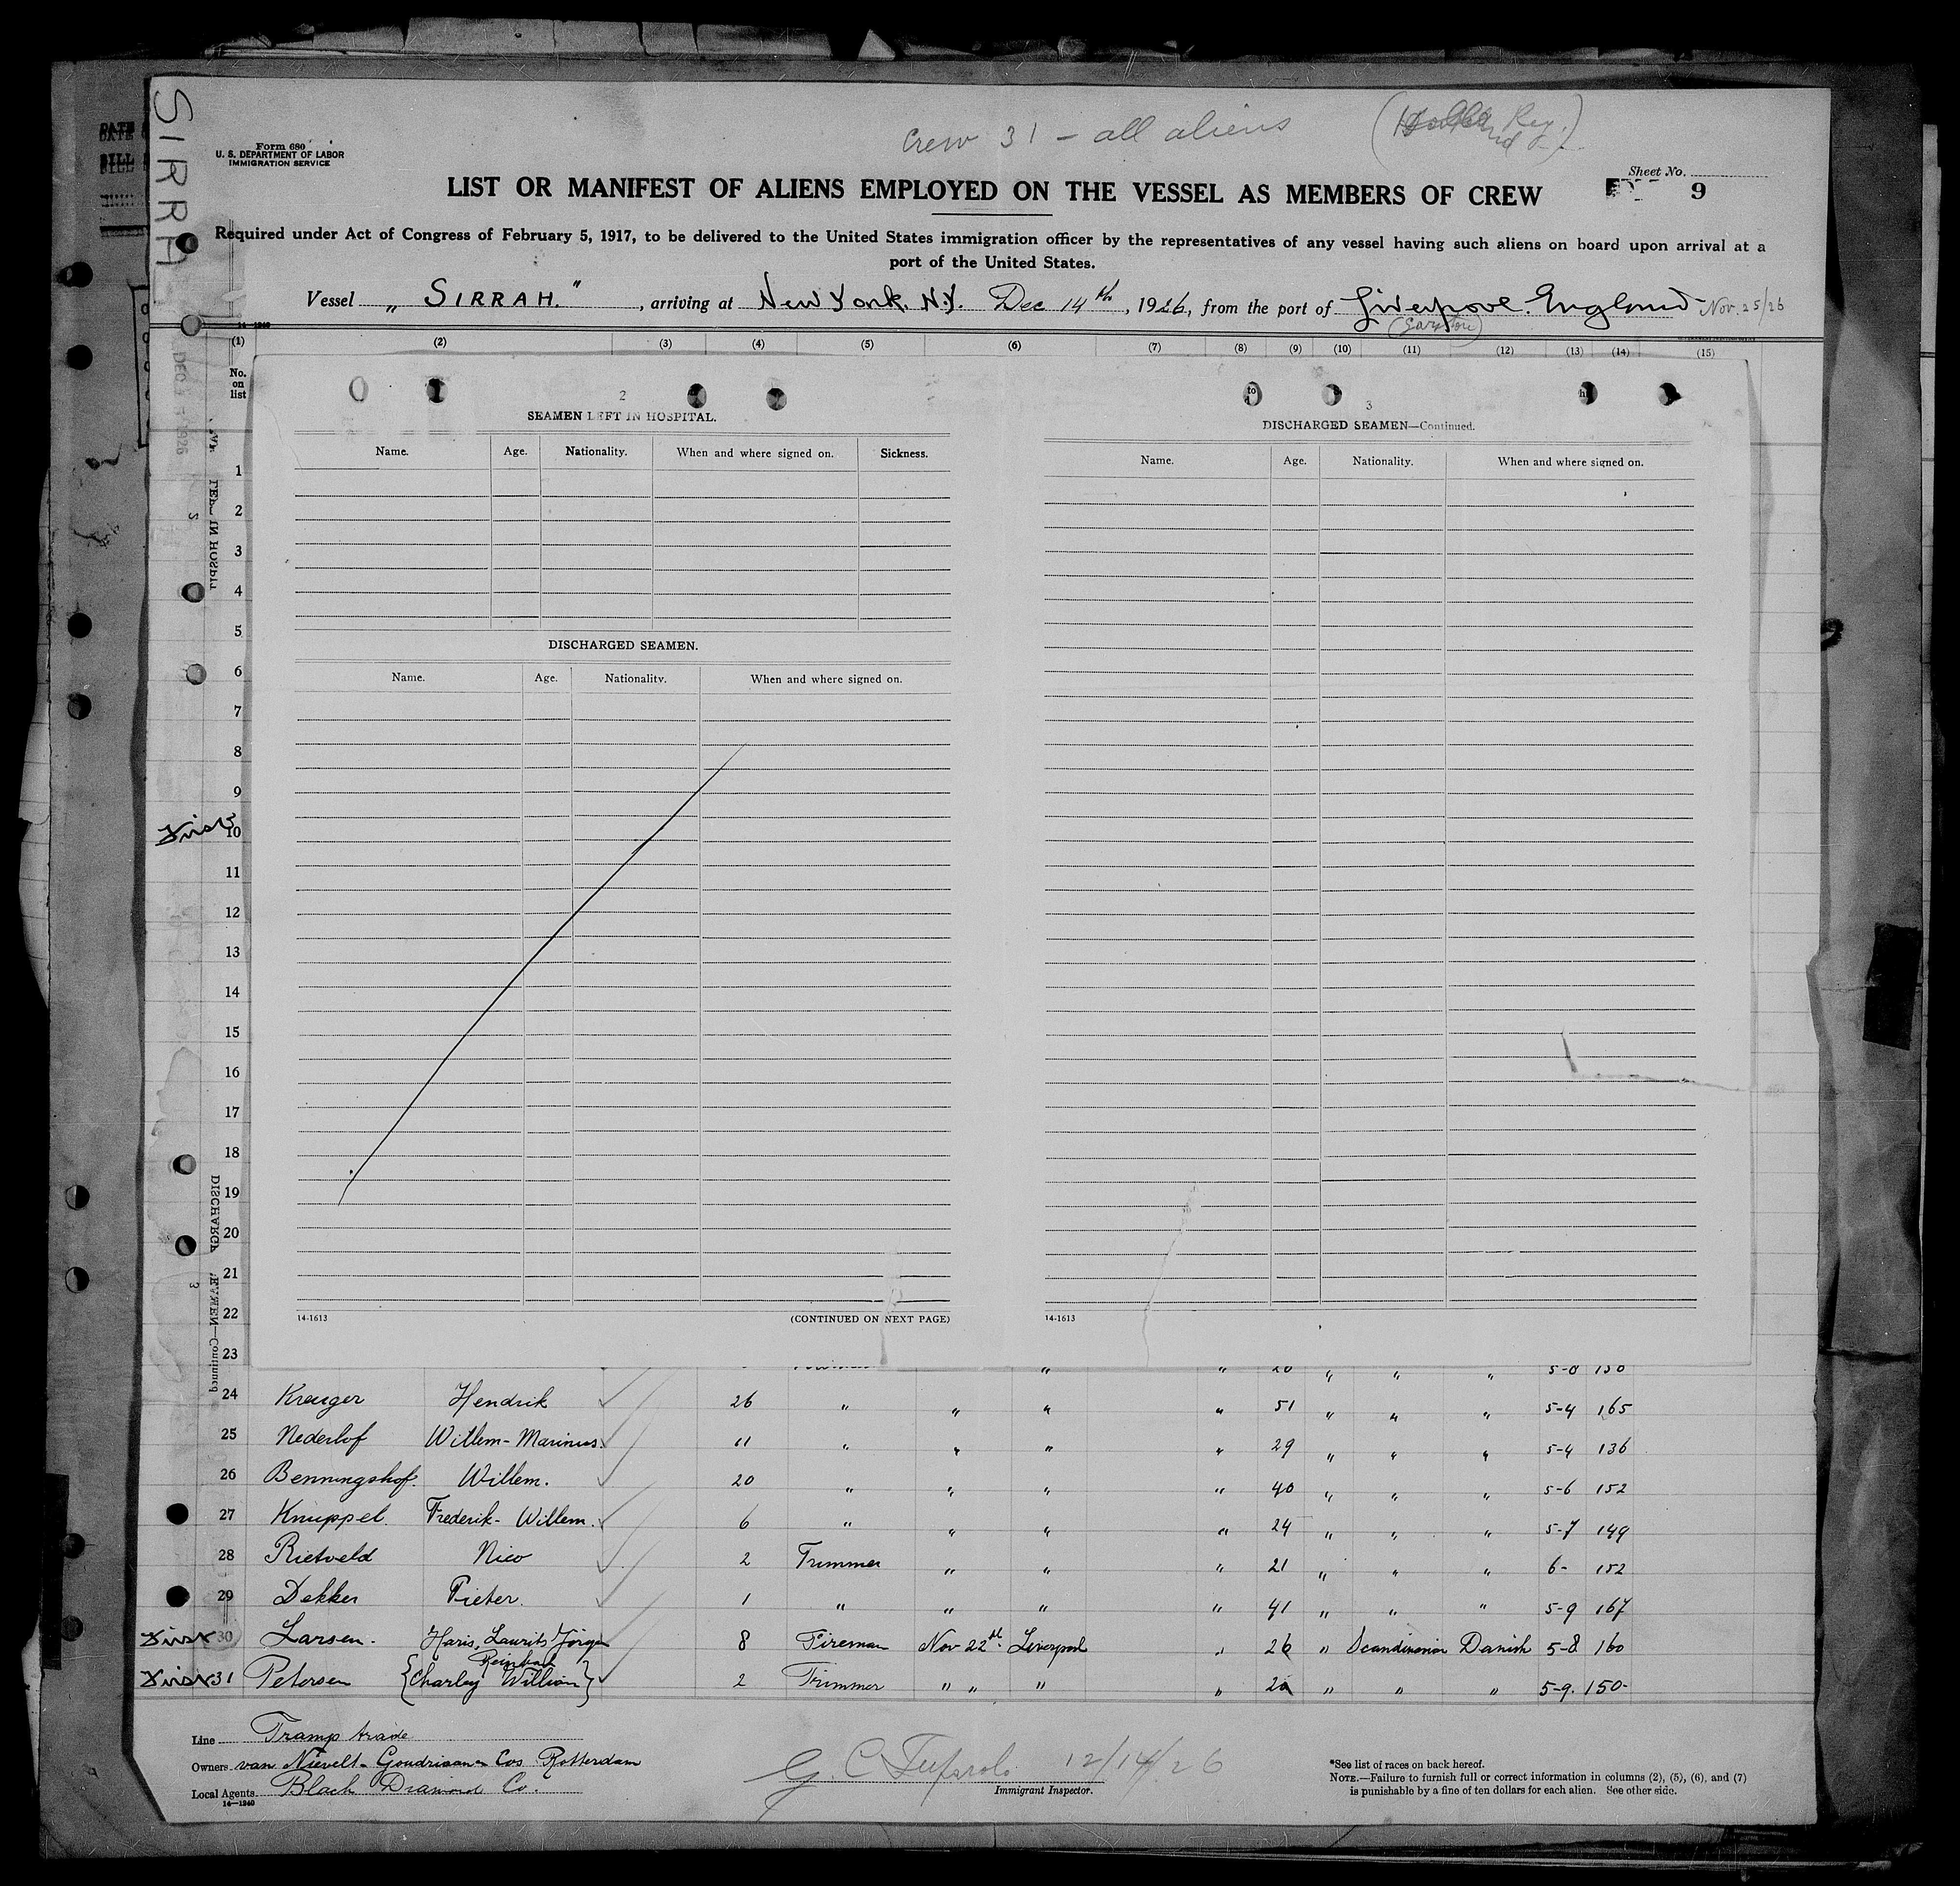 SIRRAH
Crew 31 – all aliens
Form 680
U. S. DEPARTMENT OF LABOR
IMMIGRATION SERVICE
Sheet No.
9
LIST OR MANIFEST OF ALIENS EMPLOYED ON THE VESSEL AS MEMBERS OF CREW
Required under Act of Congress of February 5, 1917, to be delivered to the United States immigration officer by the representatives of any vessel having such aliens on board upon arrival at a
port of the United States.
Vessel „ SIRRAH. ", arriving at New York, N.Y. Dec 14th, 1926, from the port of Liverpool. England Nov. 25/26
(Garston)
14-1240
(1) (2) (3) (4) (5) (6) (7) (8) (9) (10) (11) (12) (13) (14) (15)
No. on list
2
SEAMEN LEFT IN HOSPITAL.
Name. Age. Nationality. When and where signed on. Sickness.
DISCHARGED SEAMEN.
Name. Age. Nationality. When and where signed on.
14-1613 (CONTINUED ON NEXT PAGE)
3
DISCHARGED SEAMEN—Continued.
Name. Age. Nationality. When and where signed on.
14-1613
1
2
3
4
5
6
7
8
9
First 10
11
12
13
14
15
16
17
18
19
20
21
22
23 " " 20 " " " 5-8 150
24 Kreuger Hendrik 26 " " " " 51 " " " 5-4 165
25 Nederlof Willem-Marinus. 11 " " " " 29 " " " 5-4 136
26 Benningshof. Willem. 20 " " " " 40 " " " 5-6 152
27 Knuppel. Frederik- Willem. 6 " " " " 24 " " " 5-7 149
28 Rietveld Nico 2 Trimmer " " " 21 " " " 6- 152
29 Dekker Pieter. 1 " " " " 41 " " " 5-9 167
First 30 Larsen. Haris, Laurits Jörgen 8 Fireman Nov 22nd. Liverpool " 26 " Scandinavian Danish 5-8 160
Reinhard
First 31 Petersen {Charley William} 2 Trimmer " " " " 20 " " " 5-9. 150-
Line Tramp trade
Owners van Nievelt- Goudriaan Cos Rotterdam
Local Agents Black Diamond Co.
14-1240
12/14/26
Immigrant Inspector.
*See list of races on back hereof.
NOTE.—Failure to furnish full or correct information in columns (2), (5), (6), and (7)
is punishable by a fine of ten dollars for each alien. See other side.